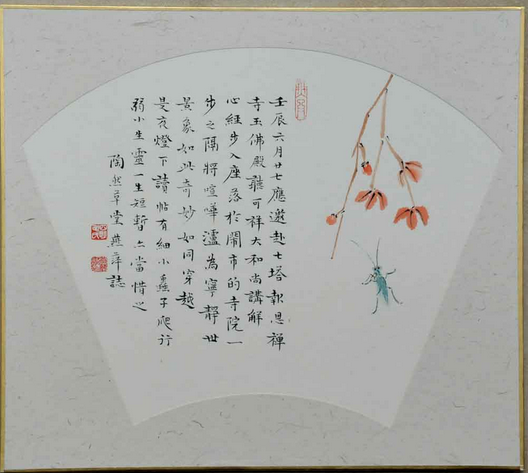 壬辰六月廿七應邀赴七塔報恩禪
寺玉佛殿聽可祥大和尚講解
心經步入座落於鬧市的寺院一
步之隔將喧嘩濾為寧靜世
景象如此奇妙如同穿越
是夜燈下讀帖有細小蟲子爬行
弱小生靈一生短暫亦當惜之
陶然草堂燕萍誌